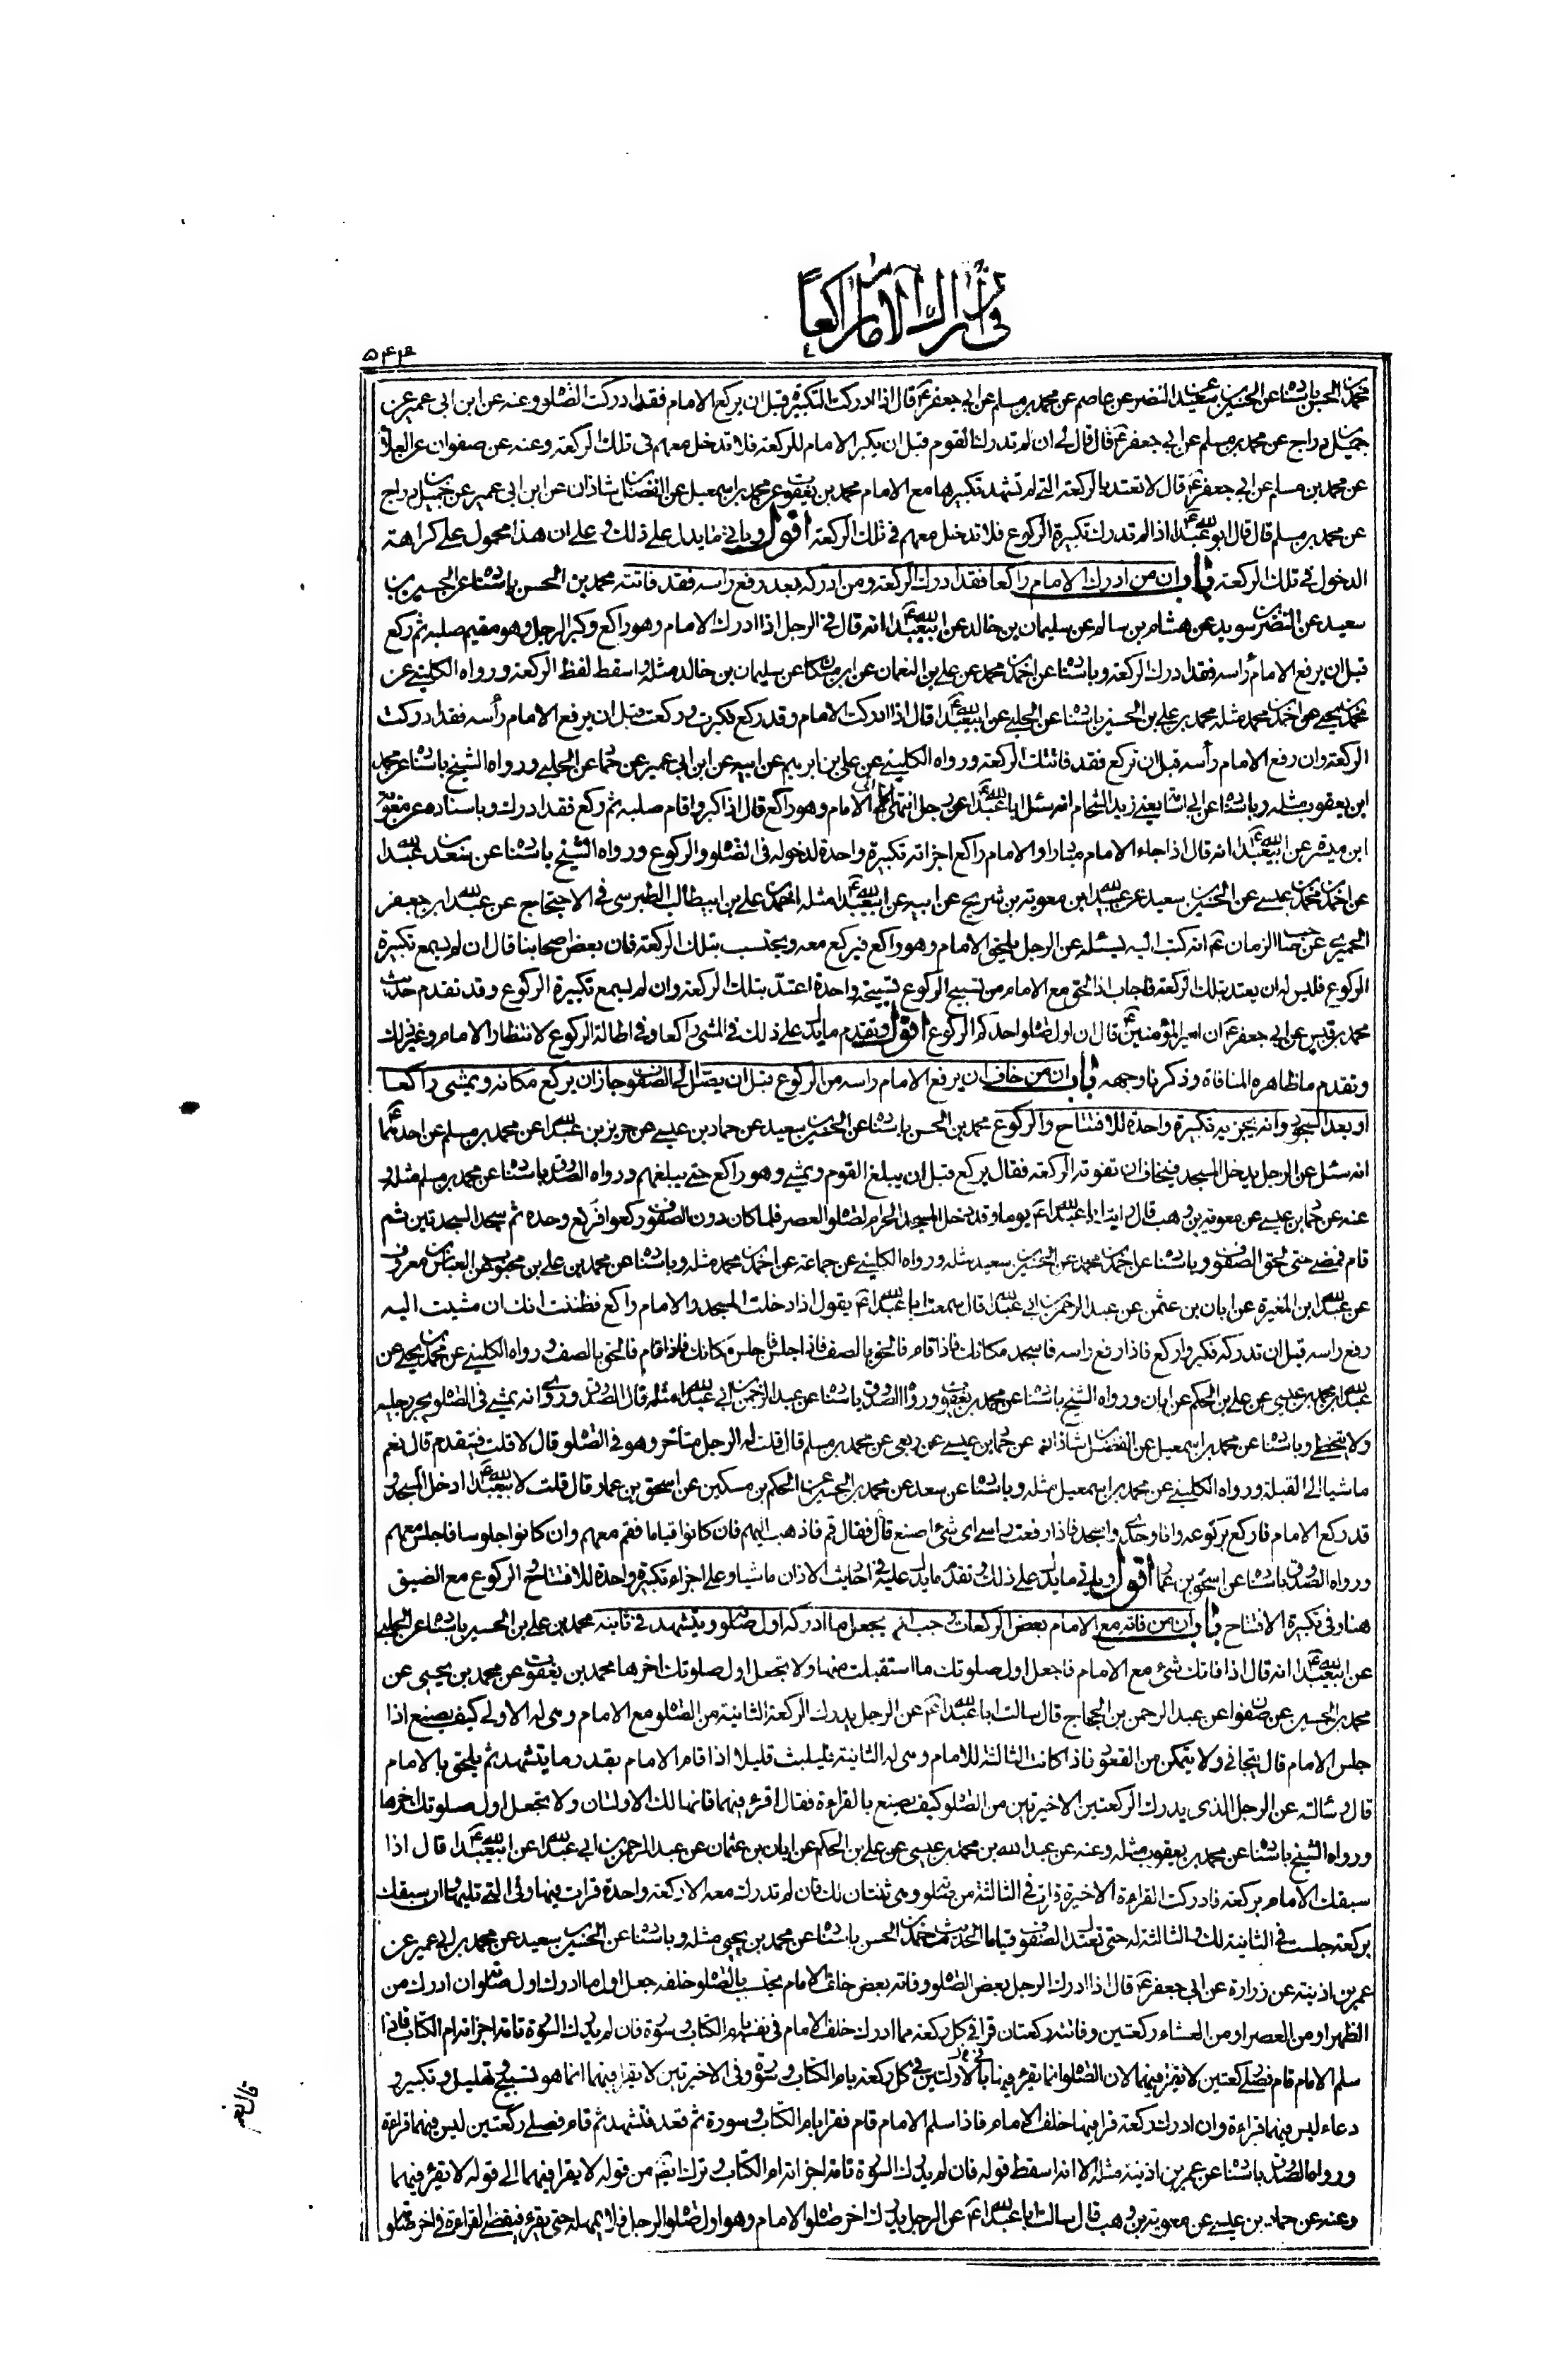 في ادراك الامام راكعاً
٥٤٤
محمد بن الحسن باسناده عن الحسين بن سعيد عن النضر عن عاصم عن محمد بن مسلم عن ابي جعفر ع قال اذا ادركت التكبيرة قبل ان يركع الامام فقد ادركت الصلوة وعنه عن ابن ابي عمير عن
جميل بن دراج عن محمد بن مسلم عن ابي جعفر ع قال قال لي ان لم تدرك القوم قبل ان يكبر الامام للركعة فلا تدخل معهم في تلك الركعة وعنه عن صفوان عن العلا
عن محمد بن مسلم عن ابي جعفر ع قال لا تعتد بالركعة التي لم تشهد تكبيرها مع الامام محمد بن يعقوب عن محمد بن اسمعيل عن الفضل بن شاذان عن ابن ابي عمير عن جميل بن دراج
عن محمد بن مسلم قال قال ابو عبد الله ع اذا لم تدرك تكبيرة الركوع فلا تدخل معهم في تلك الركعة اقول وياتي ما يدل على ذلك وعلى ان هذا محمول على كراهة
الدخول في تلك الركعة باب ان من ادرك الامام راكعا فقد ادرك الركعة ومن ادركه بعد رفع راسه فقد فاتته محمد بن الحسن باسناده عن الحسين بن
سعيد عن النضر بن سويد عن هشام بن سالم عن سليمان بن خالد عن ابيعبد الله ع انه قال في الرجل اذا ادرك الامام وهو راكع وكبر الرجل وهو مقيم صلبه ثم ركع
قبل ان يرفع الامام رأسه فقد ادرك الركعة وباسناده عن احمد بن محمد عن علي بن النعمان عن ابن مسكان عن سليمان بن خالد مثله واسقط لفظ الركعة ورواه الكليني عن
محمد بن يحيى عن احمد بن محمد مثله محمد بن علي بن الحسين باسناده عن الحلبي عن ابيعبد الله ع قال اذا ادركت الامام وقد ركع فكبرت وركعت قبل ان يرفع الامام رأسه فقد ادركت
الركعة وان رفع الامام رأسه قبل ان تركع فقد فاتتك الركعة ورواه الكليني عن علي بن ابرهيم عن ابيه عن ابن ابي عمير عن حماد عن الحلبي ورواه الشيخ باسناده عن محمد
ابن يعقوب مثله وباسناده عن ابي اسامة يعني زيد الشحام انه سئل ابا عبد الله ع عن رجل انتهى الى الامام وهو راكع قال اذا كبر واقام صلبه ثم ركع فقد ادرك وباسناده عن معوية
ابن ميسرة عن ابيعبد الله ع انه قال اذا جاء الامام مبادرا والامام راكع اجزاته تكبيرة واحدة لدخوله في الصلوة والركوع ورواه الشيخ باسناده عن سعد بن عبد الله
عن احمد بن محمد بن عيسى عن الحسين بن سعيد عن عبد الله ابن معوية بن شريح عن ابيه عن ابيعبد الله ع مثله احمد بن علي بن ابيطالب الطبرسي في الاحتجاج عن عبد الله بن جعفر
الحميري عن صاحب الزمان ع انه كتب اليه يسئله عن الرجل يلحق الامام وهو راكع فيركع معه ويحتسب بتلك الركعة فان بعض اصحابنا قال ان لم يسمع تكبيرة
الركوع فليس له ان يعتد بتلك الركعة فاجاب اذا لحق مع الامام من تسبيح الركوع تسبيحة واحدة اعتد بتلك الركعة وان لم يسمع تكبيرة الركوع وقد تقدم حديث
محمد بن قيس عن ابي جعفر ع ان امير المؤمنين ع قال ان اول صلوة احدكم الركوع اقول وتقدم ما يدل على ذلك في المشي راكعا وفي اطالة الركوع لانتظار الامام وغير ذلك
وتقدم ما ظاهره المنافاة وذكرنا وجهه باب ان من خاف ان يرفع الامام راسه من الركوع قبل ان يصل الى الصفوف جاز ان يركع مكانه ويمشي راكعا
او بعد السجود وانه يجزيه تكبيرة واحدة للافتتاح والركوع محمد بن الحسن باسناده عن الحسين بن سعيد عن حماد بن عيسى عن حريز بن عبد الله عن محمد بن مسلم عن احدهما ع
انه سئل عن الرجل يدخل المسجد فيخاف ان تفوته الركعة فقال يركع قبل ان يبلغ القوم ويمشي وهو راكع حتى يبلغهم ورواه الصدوق باسناده عن محمد بن مسلم مثله و
عنه عن حماد بن عيسى عن معوية بن وهب قال رايت ابا عبد الله ع يوما وقد دخل المسجد الحرام لصلوة العصر فلما كان دون الصفوف ركعوا فركع وحده ثم سجد السجدتين ثم
قام فمضى حتى لحق الصفوف وباسناده عن احمد بن محمد عن الحسين بن سعيد مثله ورواه الكليني عن جماعة عن احمد بن محمد مثله وباسناده عن محمد بن علي بن محبوب عن العباس بن معروف
عن عبد الله ابن المغيرة عن ابان بن عثمن عن عبد الرحمن بن ابي عبد الله قال سمعت ابا عبد الله ع يقول اذا دخلت المسجد والامام راكع فظننت انك ان مشيت اليه
رفع راسه قبل ان تدركه فكبر واركع فاذا رفع راسه فاسجد مكانك فاذا قام فالحق بالصف فاذا جلس فاجلس مكانك فاذا قام فالحق بالصف ورواه الكليني عن محمد بن يحيى عن
عبد الله بن محمد بن عيسى عن علي بن الحكم عن ابان ورواه الشيخ باسناده عن محمد بن يعقوب ورواه الصدوق باسناده عن عبد الرحمن بن ابي عبد الله مثله قال الصدوق وروي انه يمشي في الصلوة يجر رجليه
ولا يتخطى وباسناده عن محمد بن اسمعيل عن الفضل بن شاذان عن حماد بن عيسى عن ربعي عن محمد بن مسلم قال قلت له الرجل يتأخر وهو في الصلوة قال لا قلت فيتقدم قال نعم
ماشيا الى القبلة ورواه الكليني عن محمد بن اسمعيل مثله وباسناده عن سعد عن محمد بن الحسين عن الحكم بن مسكين عن اسحق بن عمار قال قلت لابيعبد الله ع ادخل المسجد و
قد ركع الامام فاركع بركوعه وانا وحدي واسجد فاذا رفعت راسي اي شئ اصنع قال فقال قم فاذهب اليهم فان كانوا قياما فقم معهم وان كانوا جلوسا فاجلس معهم
ورواه الصدوق باسناده عن اسحق بن عمار اقول وياتي ما يدل على ذلك وتقدم ما يدل عليه في احاديث الاذان ماشيا وعلى اجزاء تكبيرة واحدة للافتتاح والركوع مع الضيق
هنا وفي تكبيرة الافتتاح باب ان من فاته مع الامام بعض الركعات وجب ان يجعل ما ادركه اول صلوته ويتشهد في ثانيته محمد بن علي بن الحسين باسناده عن الحلبي
عن ابيعبد الله ع انه قال اذا فاتك شئ مع الامام فاجعل اول صلوتك ما استقبلت منها ولا تجعل اول صلوتك اخرها محمد بن يعقوب عن محمد بن يحيى عن
محمد بن الحسين عن صفوان عن عبد الرحمن بن الحجاج قال سالت ابا عبد الله ع عن الرجل يدرك الركعة الثانية من الصلوة مع الامام وهي له الاولى كيف يصنع اذا
جلس الامام قال يتجافى ولا يتمكن من القعود فاذا كانت الثالثة للامام وهي له الثانية فليلبث قليلا اذا قام الامام بقدر ما يتشهد ثم يلحق بالامام
قال وسالته عن الرجل الذي يدرك الركعتين الاخيرتين من الصلوة كيف يصنع بالقراءة فقال اقرء فيهما فانهما لك الاولتان ولا تجعل اول صلوتك اخرها
ورواه الشيخ باسناده عن محمد بن يعقوب مثله وعنه عن عبد الله بن محمد بن عيسى عن علي بن الحكم عن ابان بن عثمان عن عبد الرحمن بن ابي عبد الله عن ابيعبد الله ع قال اذا
سبقك الامام بركعة فادركت القراءة الاخيرة قرات في الثالثة من صلوته وهي ثنتان لك فان لم تدرك معه الا ركعة واحدة قرات فيها وفي التي تليها وان سبقك
بركعة جلست في الثانية لك والثالثة له حتى تعتدل الصفوف قياما الحديث محمد بن الحسن باسناده عن محمد بن يحيى مثله وباسناده عن الحسين بن سعيد عن محمد بن ابي عمير عن
عمر بن اذينة عن زرارة عن ابي جعفر ع قال اذا ادرك الرجل بعض الصلوة وفاته بعض خلف الامام يحتسب بالصلوة خلفه جعل اول ما ادرك اول صلوته ان ادرك من
الظهر او من العصر او من العشاء ركعتين وفاتته ركعتان قرا في كل ركعة مما ادرك خلف الامام في نفسه بام الكتاب وسورة فان لم يدرك السورة تامة اجزاته ام الكتاب فاذا
سلم الامام قام فصلى ركعتين لا يقرء فيهما لان الصلوة انما يقرء فيها بالاولتين في كل ركعة بام الكتاب وسورة وفي الاخيرتين لا يقرا فيهما انما هو تسبيح وتهليل وتكبير و
دعاء ليس فيهما قراءة وان ادرك ركعة قرا فيها خلف الامام فاذا سلم الامام قام فقرا بام الكتاب وسورة ثم قعد فتشهد ثم قام فصلى ركعتين ليس فيهما قراءة
ورواه الصدوق باسناده عن عمر بن اذينة مثله الا انه اسقط قوله فان لم يدرك السورة تامة اجزاته ام الكتاب وترك ايضا من قوله لا يقرا فيهما الى قوله لا يقرء فيهما
وعنه عن حماد بن عيسى عن معوية بن وهب قال سالت ابا عبد الله ع عن الرجل يدرك اخر صلوة الامام وهو اول صلوة الرجل فلا يمهله حتى يقرء فيقضي القراءة في اخر صلوته